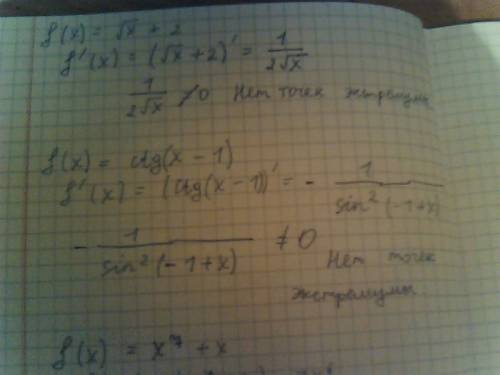 f(x) = √x + 2
f'(x) = (√x + 2)' = 1/(2√x)
1/(2√x) ≠ 0 Нет точек экстремумы
f(x) = ctg(x - 1)
f'(x) = (ctg(x - 1))' = - 1/(sin²(-1+x))
- 1/(sin²(-1+x)) ≠ 0
Нет точек
экстремумы.
f(x) = x⁷ + x